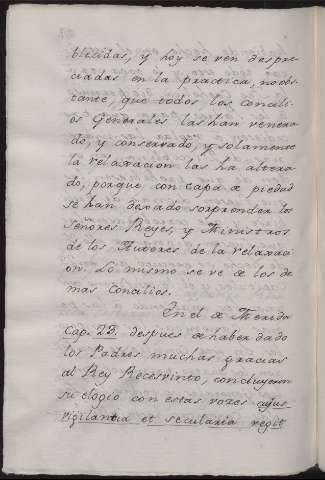 blecidas, y hoy se ven despre-
ciadas en la practica, noobs-
tante, que todos los Concili-
os Generales las han venera-
do, y conservado, y solamente
la relaxacion las ha altera-
do, porque, con capa de piedad
se han dexado sorprender los
Señores Reyes, y Ministros
de los Autores de la relaxaci-
on. Lo mismo se ve de los de
mas Concilios.
En el de Merida
Cap. 23. despues de haber dado
los Padres muchas gracias
al Rey Recesvinto, concluyeron
su elogio con estas vozes cujus
vigilantia et secularia regit